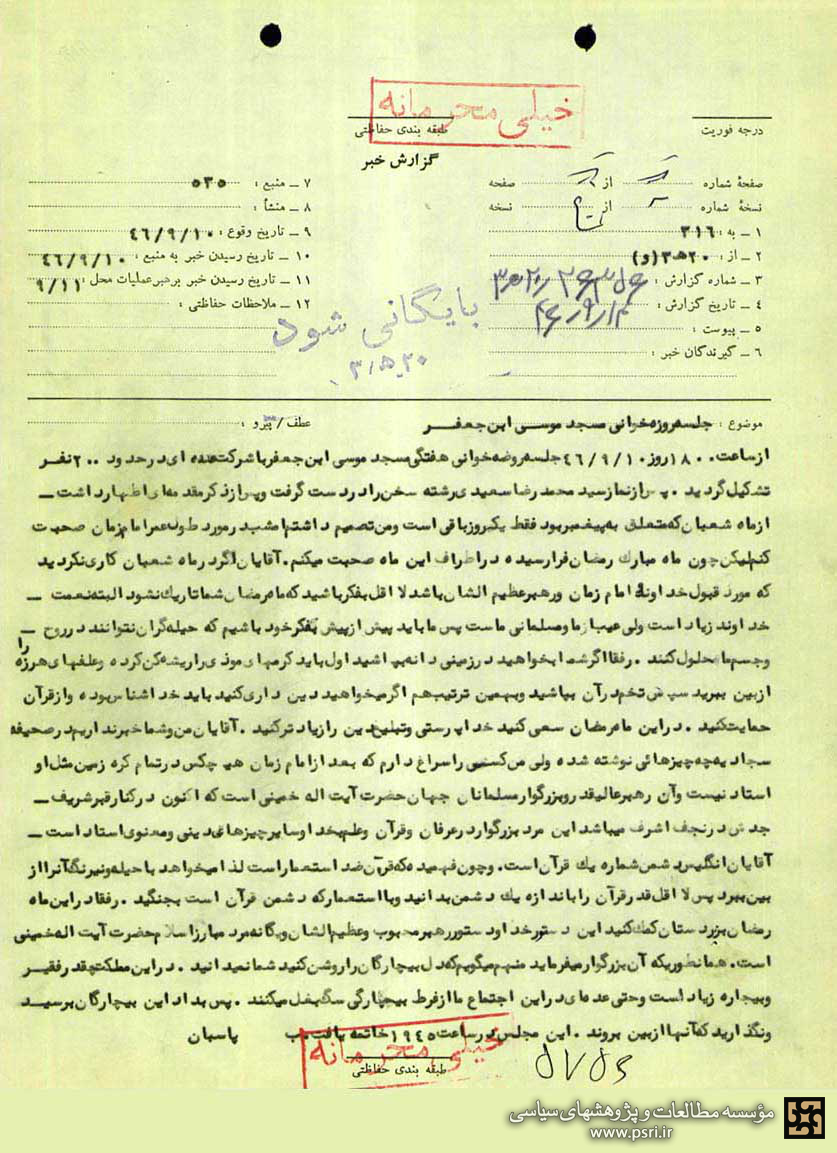 خیلی محرمانه
درجه فوریت
طبقه بندی حفاظتی
گزارش خبر
صفحهٔ شماره از صفحه
نسخهٔ شماره از نسخه
۱ ـ به : ۳۱۶
۲ ـ از : ۲۰ﻫ۳ (و)
۳ ـ شماره گزارش :
۴ ـ تاریخ گزارش :
۵ ـ پیوست :
۶ ـ گیرندگان خبر :
۷ ـ منبع : ۵۳۵
۸ ـ منشأ :
۹ ـ تاریخ وقوع : ۴۶/۹/۱۰
۱۰ ـ تاریخ رسیدن خبر به منبع : ۴۶/۹/۱۰
۱۱ ـ تاریخ رسیدن خبر برهبر عملیات محل : ۹/۱۱
۱۲ ـ ملاحظات حفاظتی :
بایگانی شود
موضوع : جلسه روزه خوانی مسجد موسی ابن جعفر
عطف / پیرو :
از ساعت ۱۸۰۰ روز ۴۶/۹/۱۰ جلسه روضه خوانی هفتگی مسجد موسی ابن جعفر با شرکت عده ای در حدود ۲۰۰ نفر
تشکیل گردید . پس از نماز سید محمد رضا سعیدی رشته سخن را در دست گرفت و پس از ذکر مقدمه ای اظهار داشت ـ
از ماه شعبان که متعلق به پیغمبر بود فقط یکروز باقی است و من تصمیم داشتم امشب در مورد طول عمر امام زمان صحبت
کنم لیکن چون ماه مبارک رمضان فرا رسیده در اطراف این ماه صحبت میکنم . آقایان اگر در ماه شعبان کاری نکردید
که مورد قبول خداوند امام زمان و رهبر عظیم الشان باشد لا اقل بفکر باشید که ماه رمضان شما تاریک نشود البته نعمت ـ
خداوند زیاد است ولی عیب از ما و مسلمانی ماست پس ما باید بیش از پیش بفکر خود باشیم که حیله گران نتوانند در روح ـ
و جسم ما حلول کنند . رفقا اگر شما بخواهید در زمینی دانه بپاشید اول باید کرمهای موذی را ریشه کن کرده و علفهای هرزه را
از بین ببرید سپس تخم در آن بپاشید و بهمین ترتیب هم اگر میخواهید دین داری کنید باید خدا شناس بوده و از قرآن
حمایت کنید . در این ماه رمضان سعی کنید خدا پرستی و تبلیغ دین را زیادتر کنید . آقایان من و شما خبر نداریم در صحیفه
سجادیه چه چیزهائی نوشته شده ولی من کسی را سراغ دارم که بعد از امام زمان هیچکس در تمام کره زمین مثل او
استاد نیست و آن رهبر عالیقدر و بزرگوار مسلمانان جهان حضرت آیت اله خمینی است که اکنون در کنار قبر شریف ـ
جدش در نجف اشرف میباشد این مرد بزرگوار در عرفان و قرآن و علم بخدا و سایر چیزهای دینی و معنوی استاد است ـ
آقایان انگلیس دشمن شماره یک قرآن است . و چون فهمیده که قرآن ضد استعمار است لذا میخواهد با حیله و نیرنگ آنرا از
بین ببرد پس لا اقل قدر قرآن را باندازه یک دشمن بدانید و با استعمار که دشمن قرآن است بجنگید . رفقا در این ماه
رمضان بزیردستان کمک کنید این دستور خدا و دستور رهبر محبوب و عظیم الشان و یگانه مرد مبارز اسلام حضرت آیت اله خمینی
است . همانطوریکه آن بزرگوار میفرماید منهم میگویم که دل بیچارگان را روشن کنید شما نمیدانید . در این مملکت چقدر فقیر
و بیچاره زیاد است و حتی عده ای در این اجتماع ما از فرط بیچارگی سگ بغل میکنند . پس بداد این بیچارگان برسید
و نگذارید که آنها از بین بروند . این مجلس در ساعت ۱۹۴۵ خاتمه یافت . ب پاسبان
خیلی محرمانه
طبقه بندی حفاظتی
مؤسسه مطالعات و پژوهشهای سیاسی
www.psri.ir